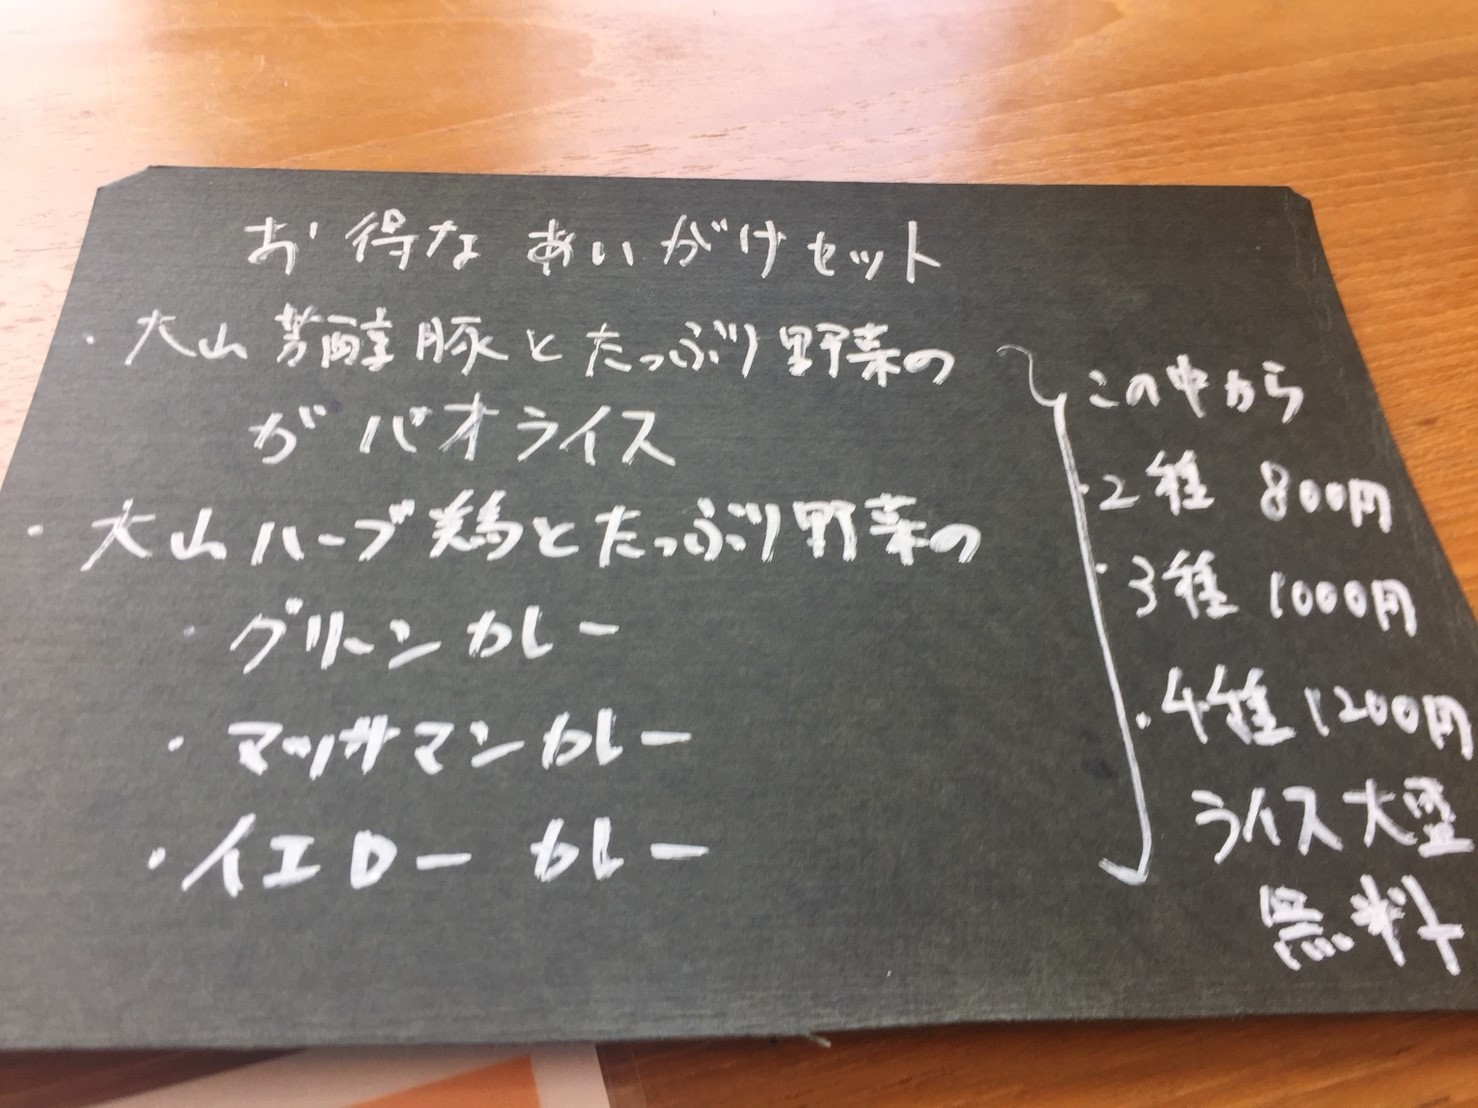 お得なあいがけセット
・大山芳醇豚とたっぷり野菜の
ガパオライス
・大山ハーブ鶏とたっぷり野菜の
・グリーンカレー
・マッサマンカレー
・イエローカレー
この中から
・2種 800円
・3種 1000円
・4種 1200円
ライス大盛
無料